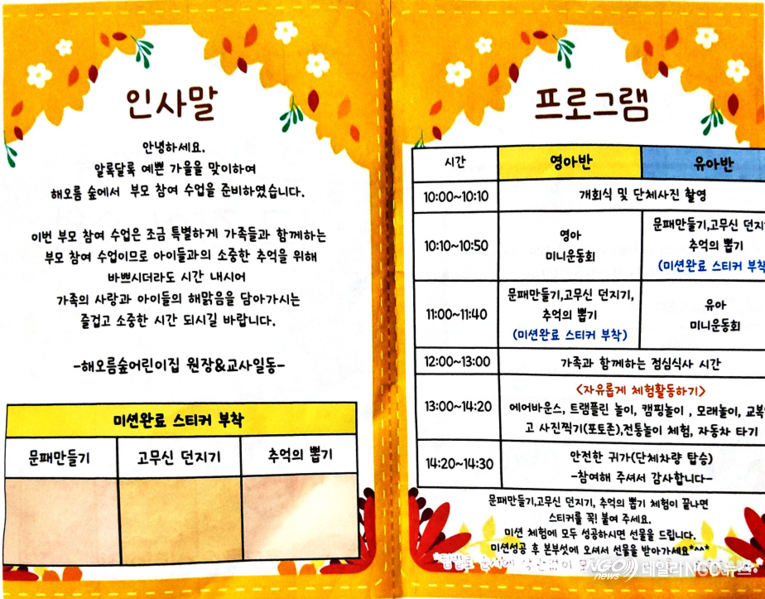 인사말
안녕하세요.
알록달록 예쁜 가을을 맞이하여
해오름 숲에서 부모 참여 수업을 준비하였습니다.
이번 부모 참여 수업은 조금 특별하게 가족들과 함께하는
부모 참여 수업이므로 아이들과의 소중한 추억을 위해
바쁘시더라도 시간 내시어
가족의 사랑과 아이들의 해맑음을 담아가시는
즐겁고 소중한 시간 되시길 바랍니다.
-해오름숲어린이집 원장&교사일동-
미션완료 스티커 부착
문패만들기 고무신 던지기 추억의 뽑기
프로그램
시간 영아반 유아반
10:00~10:10 개회식 및 단체사진 촬영
10:10~10:50
영아
미니운동회
문패만들기,고무신 던지
추억의 뽑기
(미션완료 스티커 부착
11:00~11:40
문패만들기,고무신 던지기,
추억의 뽑기
(미션완료 스티커 부착)
유아
미니운동회
12:00~13:00 가족과 함께하는 점심식사 시간
13:00~14:20
<자유롭게 체험활동하기>
에어바운스, 트램플린 놀이, 캠핑놀이 , 모래놀이, 교복
고 사진찍기(포토존),전통놀이 체험, 자동차 타기
14:20~14:30
안전한 귀가(단체차량 탑승)
-참여해 주셔서 감사합니다-
문패만들기,고무신 던지기, 추억의 뽑기 체험이 끝나면
스티커를 꼭! 붙여 주세요.
미션 체험에 모두 성공하시면 선물을 드립니다.
미션성공 후 본부석에 오셔서 선물을 받아가세요*^^*
NGO news 데일리NGO뉴스